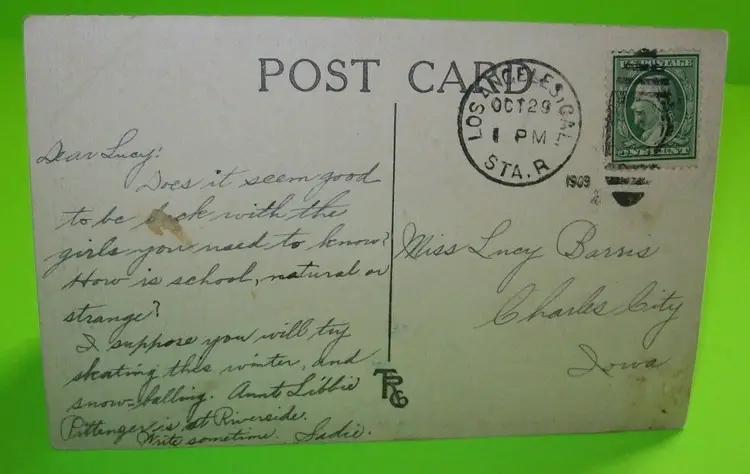 POST CARD
LOS ANGELES, CAL.
OCT 29
1 PM
STA. R
1909
U.S. POSTAGE
ONE CENT
Dear Lucy:
Does it seem good
to be back with the
girls you used to know?
How is school, natural or
strange?
I suppose you will try
skating this winter, and
snow-balling. Aunt Libbie
Pittenger is at Riverside.
Write sometime. Sadie.
Miss Lucy Barris
Charles City
Iowa